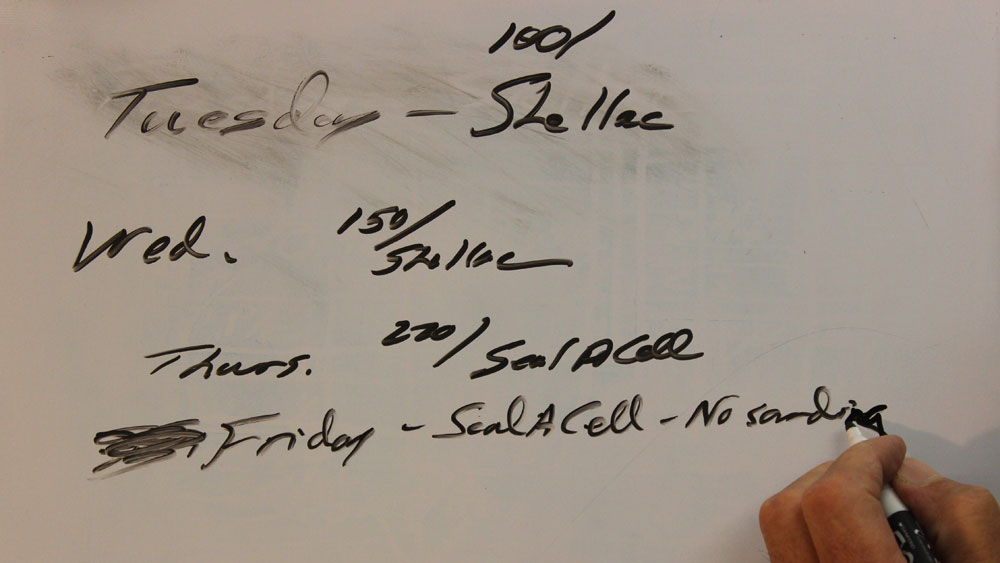 100/
Tuesday - Shellac
Wed. 150/
Shellac
Thurs. 220/ Seal A Cell
Friday - Seal A Cell - No sanding